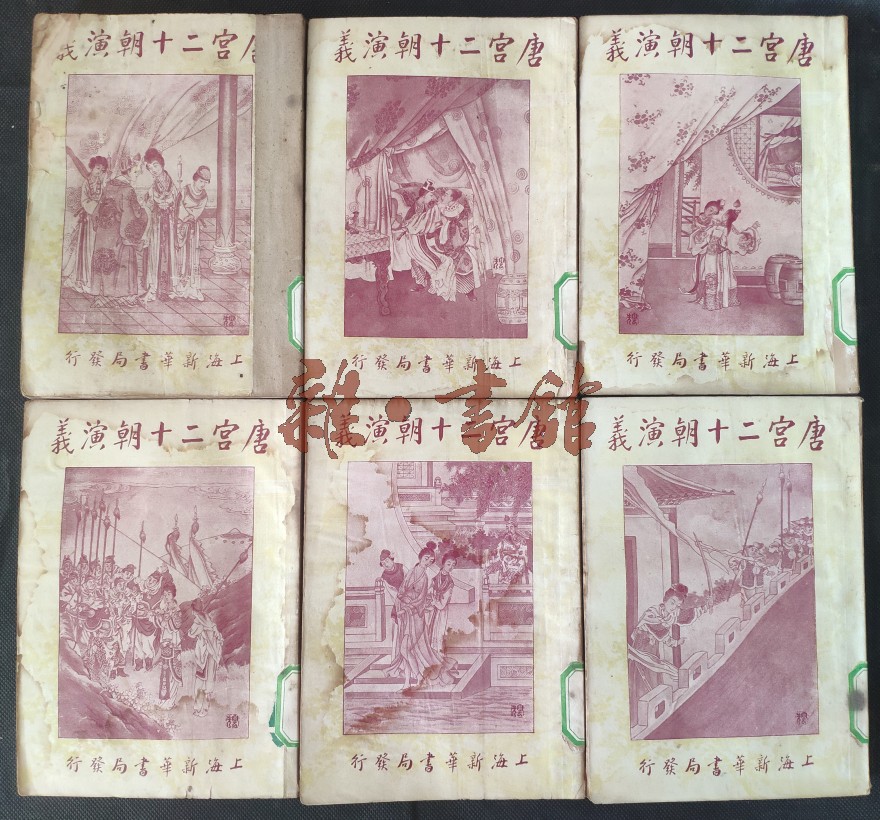 唐宮二十朝演義
上海新華書局發行
唐宮二十朝演義
上海新華書局發行
唐宮二十朝演義
上海新華書局發行
雜·書館
唐宮二十朝演義
上海新華書局發行
唐宮二十朝演義
上海新華書局發行
唐宮二十朝演義
上海新華書局發行